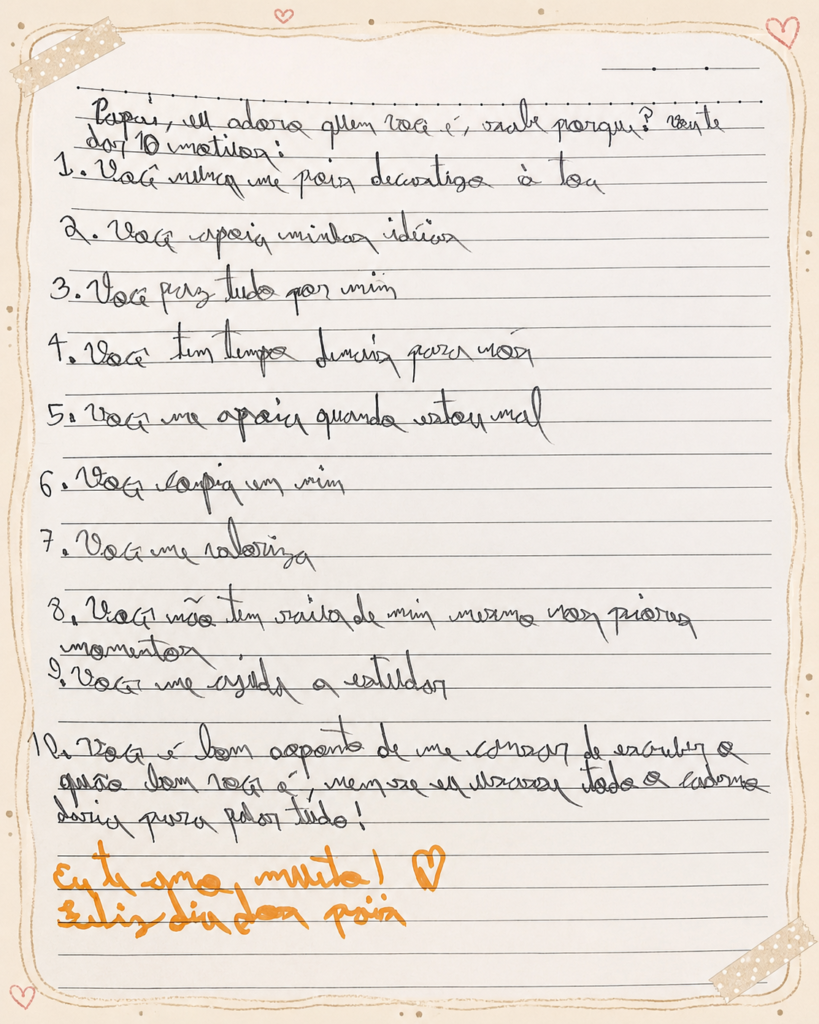 Papai, eu adoro quem você é, sabe porque? vou te
dar 10 motivos:
1. Você nunca me pois de castigo à toa
2. Você apoia minhas idéias
3. Você faz tudo por mim
4. Você tem tempo demais para nós
5. Você me apoia quando estou mal
6. Você confia em mim
7. Você me valoriza
8. Você não tem raiva de mim mesmo nos piores
momentos
9. Você me ajuda a estudar
10. Você é bom aoponto de me cansar de escrever o
quão bom você é, nem se eu usasse todo o caderno
daria para falar tudo!
Eu te amo, muito! ♡
Feliz dia dos pais